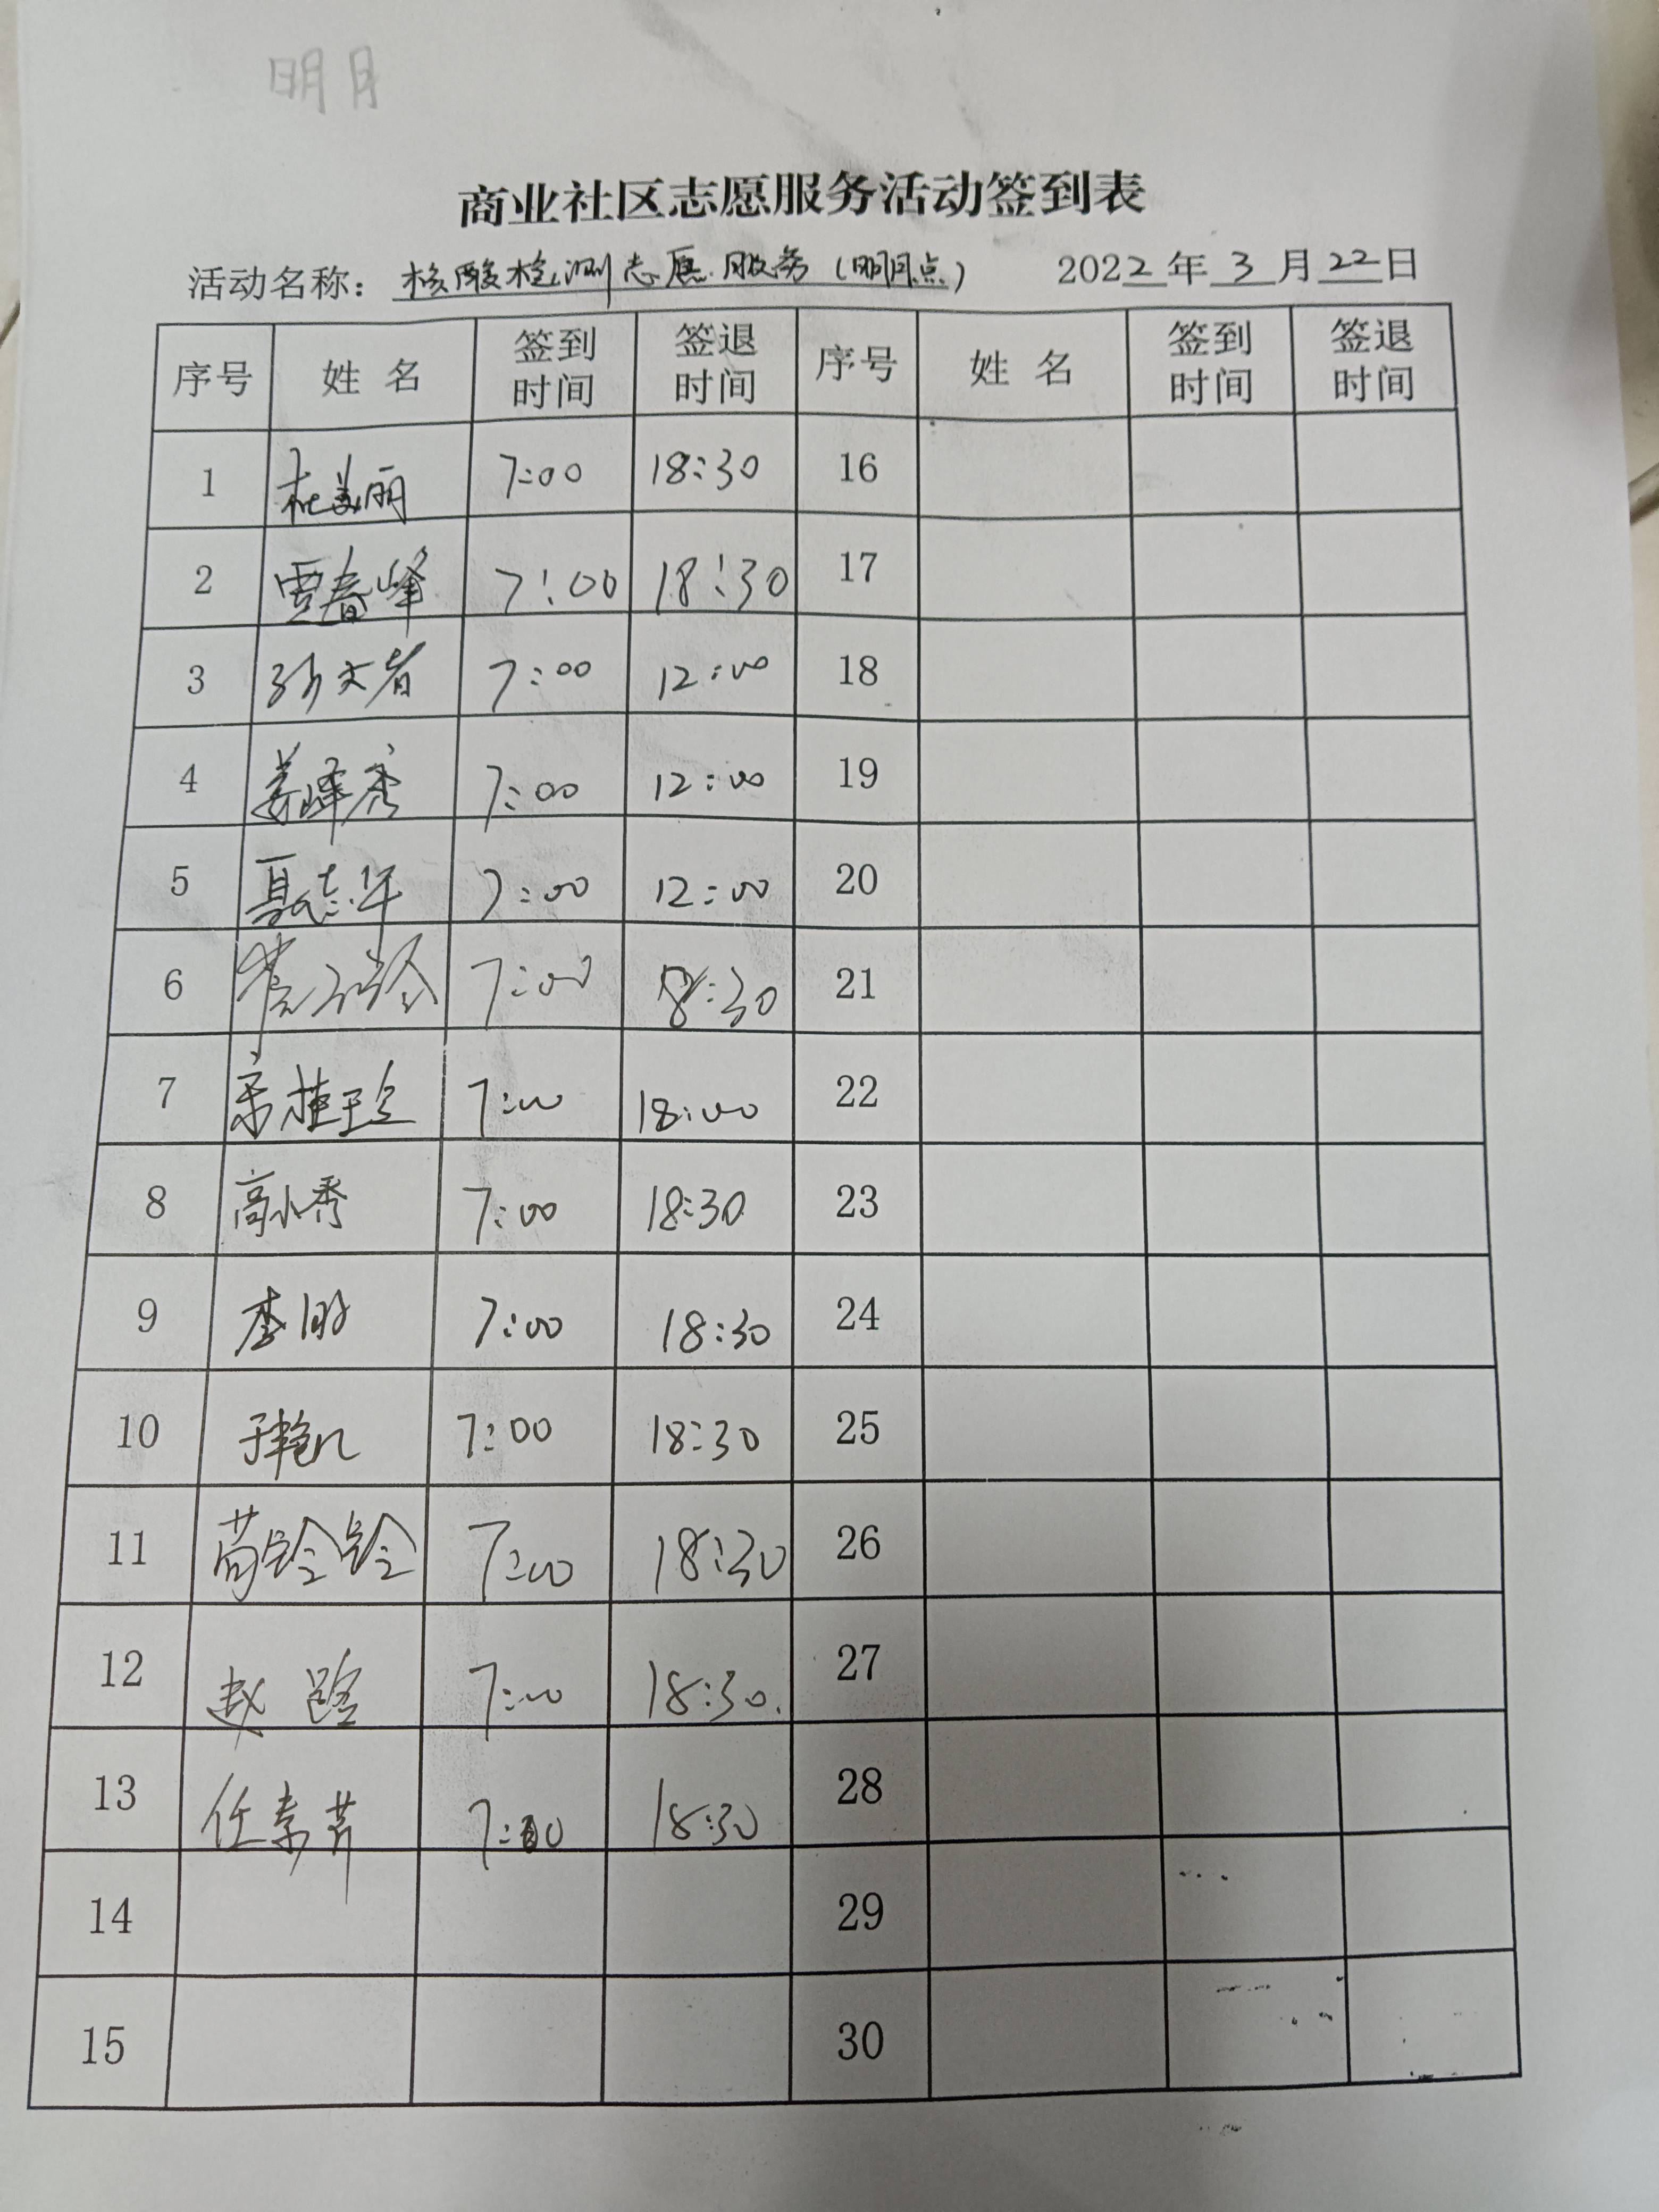 明月
商业社区志愿服务活动签到表
活动名称：核酸检测志愿服务（明月点） 2022年3月22日
序号 姓名 签到时间 签退时间 序号 姓名 签到时间 签退时间
1 杜美丽 7:00 18:30 16
2 贾春峰 7:00 18:30 17
3 孙文省 7:00 12:00 18
4 姜峰秀 7:00 12:00 19
5 聂志年 7:00 12:00 20
6 7:00 18:30 21
7 宋桂珍 7:00 18:00 22
8 高小秀 7:00 18:30 23
9 李明 7:00 18:30 24
10 于艳 7:00 18:30 25
11 苟铃铃 7:00 18:30 26
12 赵 7:00 18:30 27
13 任素芹 7:00 18:30 28
14 29
15 30